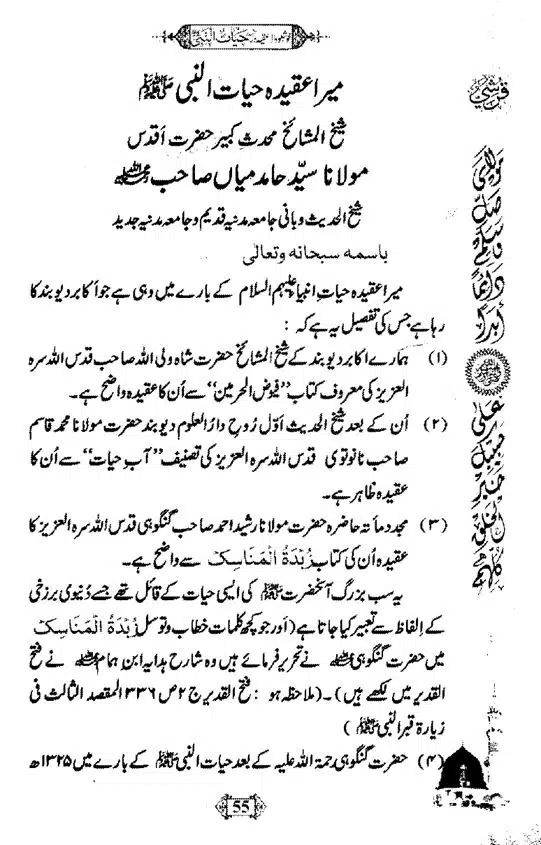 حیات النبی ﷺ
میرا عقیدہ حیات النبی ﷺ
شیخ المشائخ محدث کبیر حضرت اقدس
مولانا سیّد حامد میاں صاحب رحمۃ اللہ علیہ
شیخ الحدیث و بانی جامعہ مدنیہ قدیم و جامعہ مدنیہ جدید
باسمہ سبحانہ وتعالی
میرا عقیدہ حیاتِ انبیاء علیہم السلام کے بارے میں وہی ہے جو اکابر دیوبند کا
رہا ہے جس کی تفصیل یہ ہے کہ :
(۱) ہمارے اکابر دیوبند کے شیخ المشائخ حضرت شاہ ولی اللہ صاحب قدس اللہ سرہ
العزیز کی معروف کتاب ”فیوض الحرمین“ سے اُن کا عقیدہ واضح ہے۔
(۲) اُن کے بعد شیخ الحدیث اوّل رُوحِ دارُ العلوم دیوبند حضرت مولانا محمد قاسم
صاحب نانوتوی قدس اللہ سرہ العزیز کی تصنیف ”آبِ حیات“ سے اُن کا
عقیدہ ظاہر ہے۔
(۳) مجدد مأتہ حاضرہ حضرت مولانا رشید احمد صاحب گنگوہی قدس اللہ سرہ العزیز کا
عقیدہ اُن کی کتاب زُبْدَۃُ الْمَنَاسِکْ سے واضح ہے۔
یہ سب بزرگ آنحضرت ﷺ کی ایسی حیات کے قائل تھے جسے دُنیوی برزخی
کے الفاظ سے تعبیر کیا جاتا ہے (اور جو کچھ کلمات خطاب و توسل زُبْدَۃُ الْمَنَاسِکْ
میں حضرت گنگوہی رحمۃ اللہ علیہ نے تحریر فرمائے ہیں وہ شارح ہدایہ ابن ہمام رحمۃ اللہ علیہ نے فتح
القدیر میں لکھے ہیں)۔ (ملاحظہ ہو : فتح القدیر ج ۲ ص ۳۳۶ المقصد الثالث فی
زیارۃ قبر النبی ﷺ )
(۴) حضرت گنگوہی رحمۃ اللہ علیہ کے بعد حیات النبی ﷺ کے بارے میں ۱۳۲۵ھ
55
قرشی
مولای صل وسلم دائما ابدا
علی حبیبک خیر الخلق کلهم